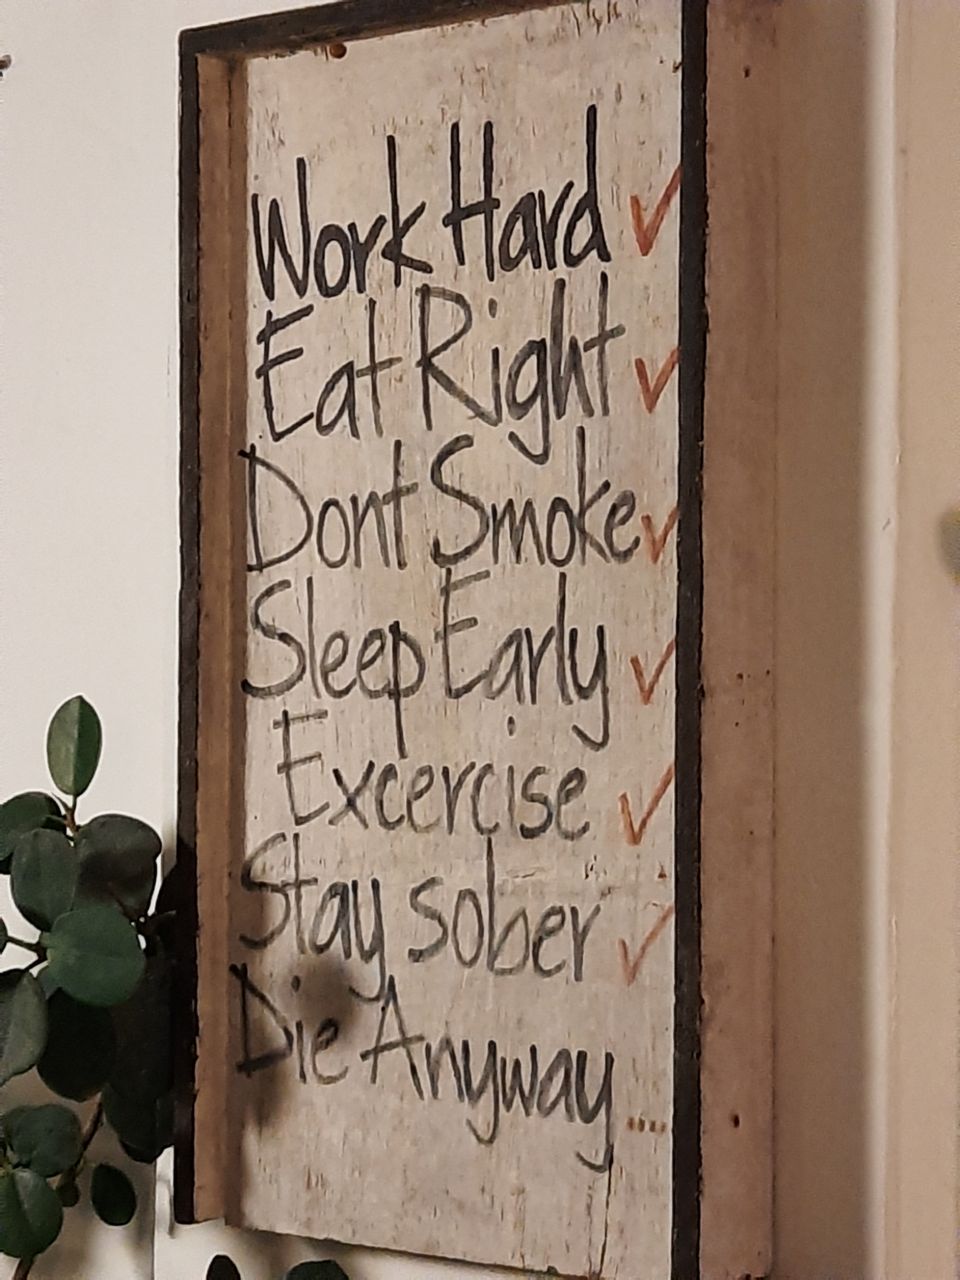 Work Hard ✓
Eat Right ✓
Dont Smoke ✓
Sleep Early ✓
Excercise ✓
Stay sober ✓
Die Anyway ....